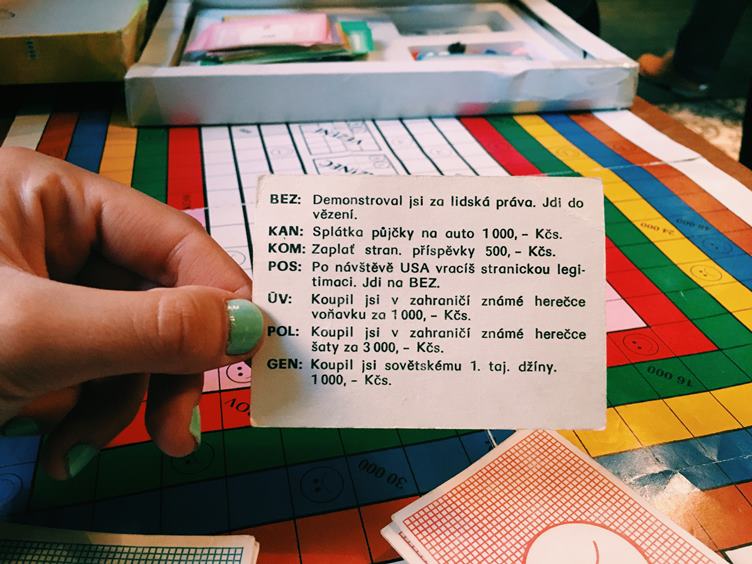 VĚZNI
BEZ: Demonstroval jsi za lidská práva. Jdi do
vězení.
KAN: Splátka půjčky na auto 1 000,- Kčs.
KOM: Zaplať stran. příspěvky 500,- Kčs.
POS: Po návštěvě USA vracíš stranickou legi-
timaci. Jdi na BEZ.
ÚV: Koupil jsi v zahraničí známé herečce
voňavku za 1 000,- Kčs.
POL: Koupil jsi v zahraničí známé herečce
šaty za 3 000,- Kčs.
GEN: Koupil jsi sovětskému 1. taj. džíny.
1 000,- Kčs.
48 000
24 000
16 000
30 000